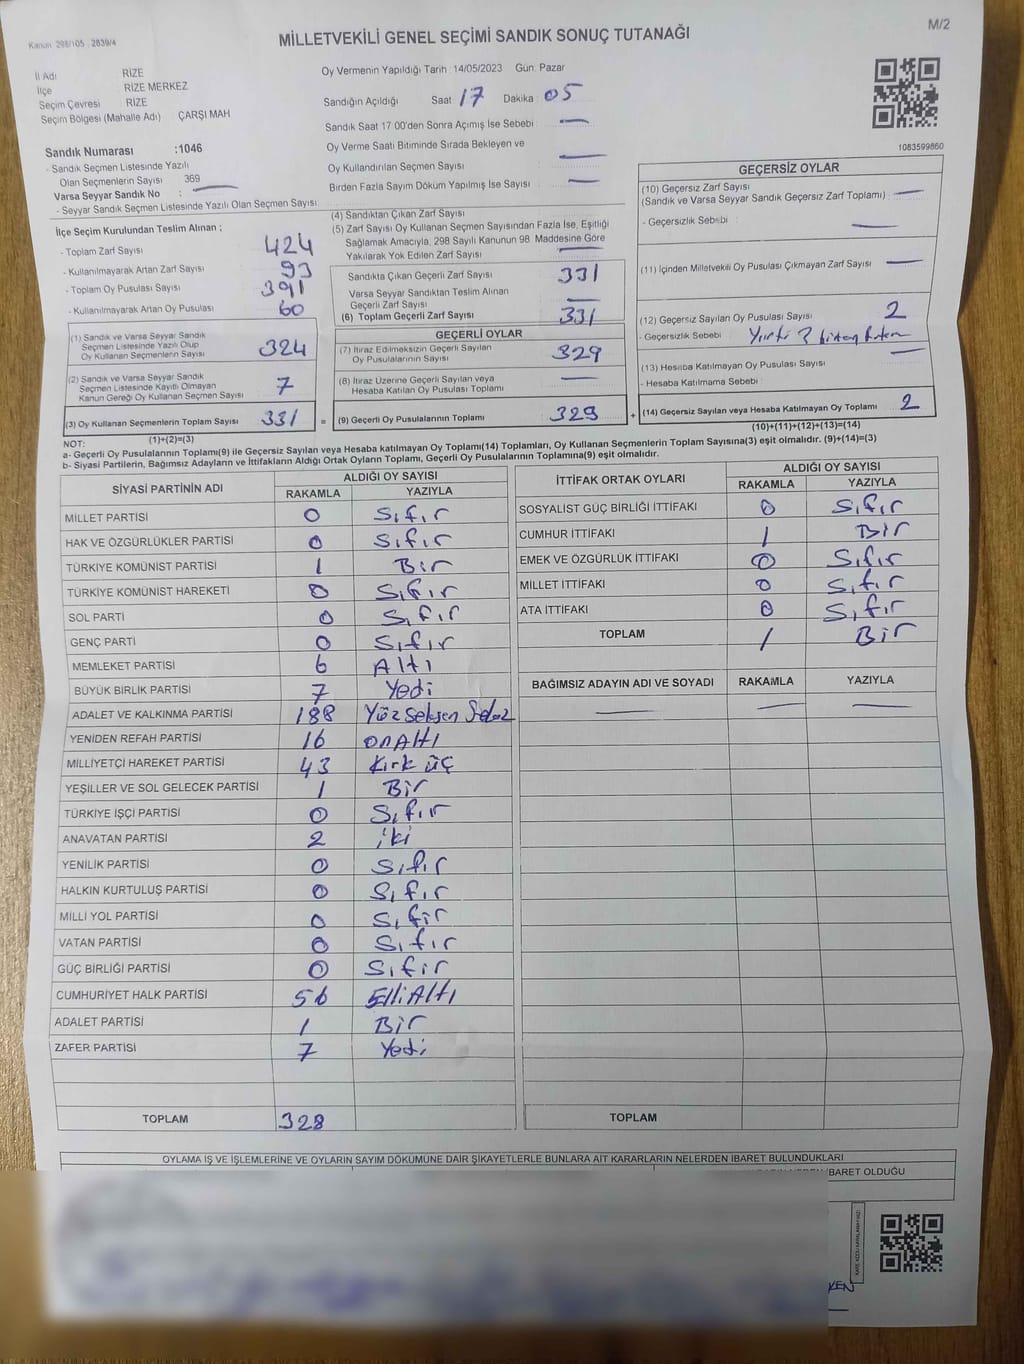 Kanun 298/105 . 2839/4
M/2
MİLLETVEKİLİ GENEL SEÇİMİ SANDIK SONUÇ TUTANAĞI
İl Adı RİZE
İlçe RİZE MERKEZ
Seçim Çevresi RİZE
Seçim Bölgesi (Mahalle Adı) ÇARŞI MAH
Sandık Numarası :1046
- Sandık Seçmen Listesinde Yazılı
Olan Seçmenlerin Sayısı 369
Varsa Seyyar Sandık No :
- Seyyar Sandık Seçmen Listesinde Yazılı Olan Seçmen Sayısı:
Oy Vermenin Yapıldığı Tarih :14/05/2023 Gün: Pazar
Sandığın Açıldığı Saat 17 Dakika 05
Sandık Saat 17 00'den Sonra Açımış İse Sebebi :
Oy Verme Saati Bitiminde Sırada Bekleyen ve
Oy Kullandırılan Seçmen Sayısı
Birden Fazla Sayım Döküm Yapılmış İse Sayısı :
1083599860
İlçe Seçim Kurulundan Teslim Alınan ;
- Toplam Zarf Sayısı 424
- Kullanılmayarak Artan Zarf Sayısı 93
- Toplam Oy Pusulası Sayısı 391
- Kullanılmayarak Artan Oy Pusulası 60
(1) Sandık ve Varsa Seyyar Sandık
Seçmen Listesinde Yazılı Olup
Oy Kullanan Seçmenlerin Sayısı 324
(2) Sandık ve Varsa Seyyar Sandık
Seçmen Listesinde Kayıtlı Olmayan
Kanun Gereği Oy Kullanan Seçmen Sayısı 7
(3) Oy Kullanan Seçmenlerin Toplam Sayısı 331 =
(1)+(2)=(3)
(4) Sandıktan Çıkan Zarf Sayısı
(5) Zarf Sayısı Oy Kullanan Seçmen Sayısından Fazla İse, Eşitliği
Sağlamak Amacıyla, 298 Sayılı Kanunun 98 Maddesine Göre
Yakılarak Yok Edilen Zarf Sayısı
Sandıkta Çıkan Geçerli Zarf Sayısı 331
Varsa Seyyar Sandıktan Teslim Alınan
Geçerli Zarf Sayısı
(6) Toplam Geçerli Zarf Sayısı 331
GEÇERLİ OYLAR
(7) İtiraz Edilmeksizin Geçerli Sayılan
Oy Pusulalarının Sayısı 329
(8) İtiraz Üzerine Geçerli Sayılan veya
Hesaba Katılan Oy Pusulası Toplamı
(9) Geçerli Oy Pusulalarının Toplamı 329 +
GEÇERSİZ OYLAR
(10) Geçersiz Zarf Sayısı
(Sandık ve Varsa Seyyar Sandık Geçersiz Zarf Toplamı) :
- Geçersizlik Sebebi :
(11) İçinden Milletvekili Oy Pusulası Çıkmayan Zarf Sayısı
(12) Geçersiz Sayılan Oy Pusulası Sayısı 2
- Geçersizlik Sebebi
(13) Hesaba Katılmayan Oy Pusulası Sayısı
- Hesaba Katılmama Sebebi
(14) Geçersiz Sayılan veya Hesaba Katılmayan Oy Toplamı 2
(10)+(11)+(12)+(13)=(14)
NOT:
a- Geçerli Oy Pusulalarının Toplamı(9) ile Geçersiz Sayılan veya Hesaba katılmayan Oy Toplamı(14) Toplamları, Oy Kullanan Seçmenlerin Toplam Sayısına(3) eşit olmalıdır. (9)+(14)=(3)
b- Siyasi Partilerin, Bağımsız Adayların ve İttifakların Aldığı Ortak Oyların Toplamı, Geçerli Oy Pusulalarının Toplamına(9) eşit olmalıdır.
SİYASİ PARTİNİN ADI ALDIĞI OY SAYISI
RAKAMLA YAZIYLA
MİLLET PARTİSİ 0 Sıfır
HAK VE ÖZGÜRLÜKLER PARTİSİ 0 Sıfır
TÜRKİYE KOMÜNİST PARTİSİ 1 Bir
TÜRKİYE KOMÜNİST HAREKETİ 0 Sıfır
SOL PARTİ 0 Sıfır
GENÇ PARTİ 0 Sıfır
MEMLEKET PARTİSİ 6 Altı
BÜYÜK BİRLİK PARTİSİ 7 Yedi
ADALET VE KALKINMA PARTİSİ 188 Yüz Seksen Sekiz
YENİDEN REFAH PARTİSİ 16 on Altı
MİLLİYETÇİ HAREKET PARTİSİ 43 Kırk üç
YEŞİLLER VE SOL GELECEK PARTİSİ 1 Bir
TÜRKİYE İŞÇİ PARTİSİ 0 Sıfır
ANAVATAN PARTİSİ 2 iki
YENİLİK PARTİSİ 0 Sıfır
HALKIN KURTULUŞ PARTİSİ 0 Sıfır
MİLLİ YOL PARTİSİ 0 Sıfır
VATAN PARTİSİ 0 Sıfır
GÜÇ BİRLİĞİ PARTİSİ 0 Sıfır
CUMHURİYET HALK PARTİSİ 56 Elli Altı
ADALET PARTİSİ 1 Bir
ZAFER PARTİSİ 7 Yedi
TOPLAM 328
İTTİFAK ORTAK OYLARI ALDIĞI OY SAYISI
RAKAMLA YAZIYLA
SOSYALİST GÜÇ BİRLİĞİ İTTİFAKI 0 Sıfır
CUMHUR İTTİFAKI 1 Bir
EMEK VE ÖZGÜRLÜK İTTİFAKI 0 Sıfır
MİLLET İTTİFAKI 0 Sıfır
ATA İTTİFAKI 0 Sıfır
TOPLAM 1 Bir
BAĞIMSIZ ADAYIN ADI VE SOYADI RAKAMLA YAZIYLA
TOPLAM
OYLAMA İŞ VE İŞLEMLERİNE VE OYLARIN SAYIM DÖKÜMÜNE DAİR ŞİKAYETLERLE BUNLARA AİT KARARLARIN NELERDEN İBARET BULUNDUKLARI
İBARET OLDUĞU